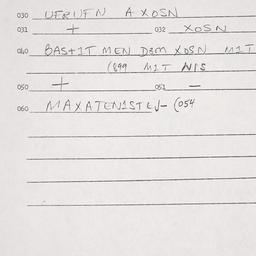 030 UERIJFN A XOSN
031 + 032 XOSN
040 BAS+IT MEN D3M XOSN MIT
(899 MIT NIS
050 + 051 –
060 MAXATENISTEJ- (054